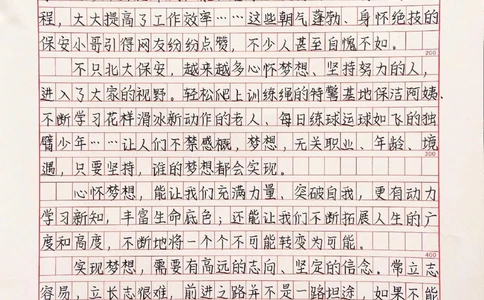 程，大大提高了工作效率……这些朝气蓬勃、身怀绝技的
保安小哥引得网友纷纷点赞，不少人甚至自愧不如。
200
不只北大保安，越来越多心怀梦想、坚持努力的人，
进入了大家的视野。轻松爬上训练绳的特警基地保洁阿姨、
不断学习花样滑冰新动作的老人、每日练球运球如飞的独
臂少年……让人们不禁感慨，梦想，无关职业、年龄、境
遇，只要坚持，谁的梦想都会实现。
心怀梦想，能让我们充满力量、突破自我，更有动力
学习新知，丰富生命底色；还能让我们不断拓展人生的广
度和高度，不断地将一个个不可能转变为可能。
400
实现梦想，需要有高远的志向、坚定的信念。常立志
容易，立长志很难，前进之路并不是一路坦途，如果不能